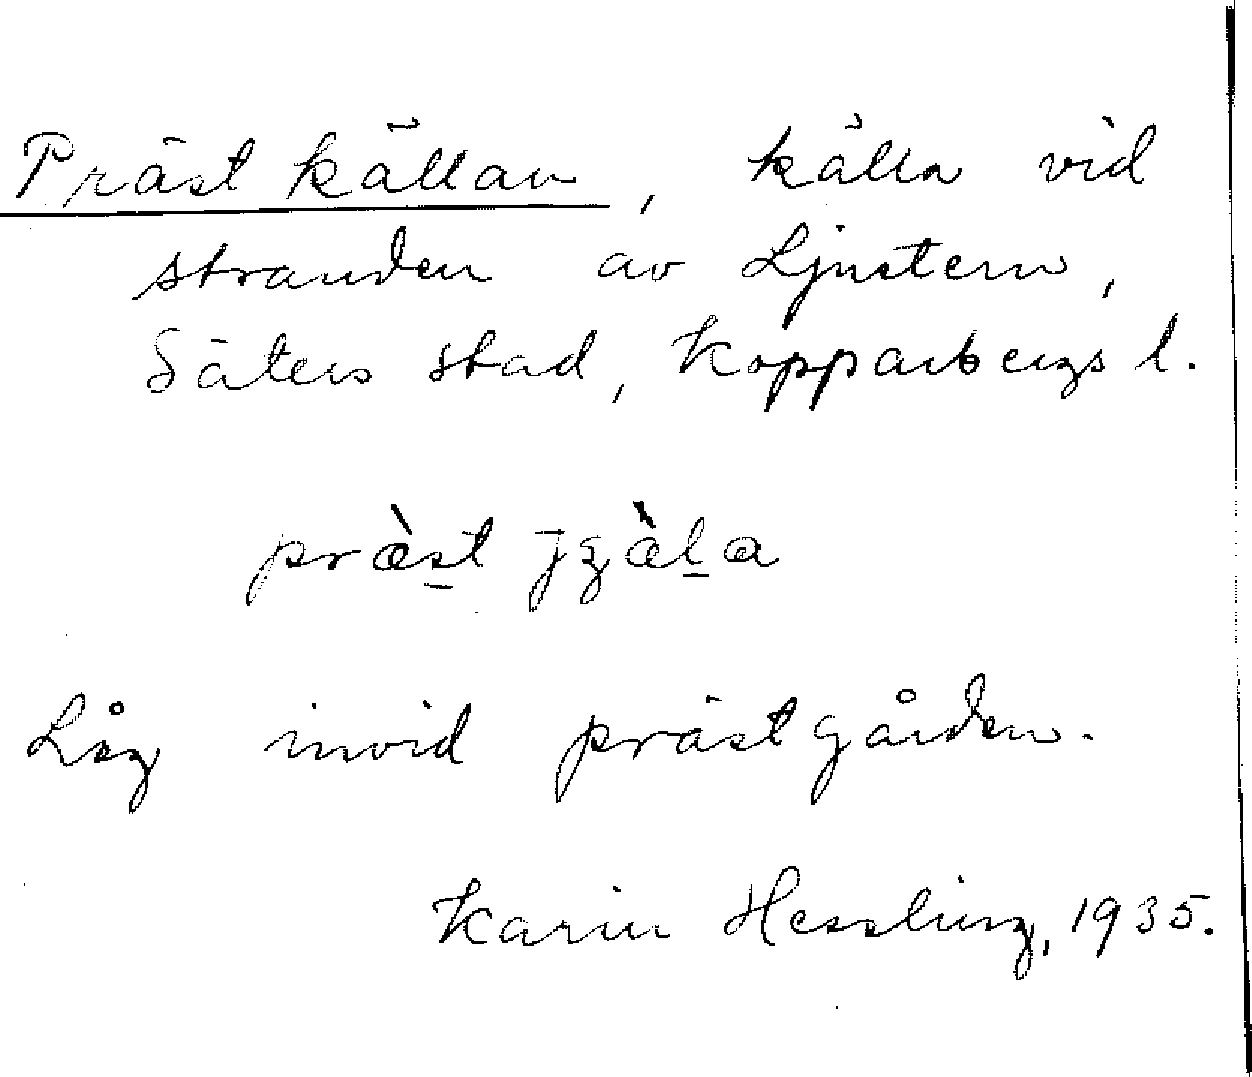 Prästkällan, källa vid
stranden av Ljustern,
Säters stad, Kopparbergs l.
Låg invid prästgården.
Karin Hessling, 1935.